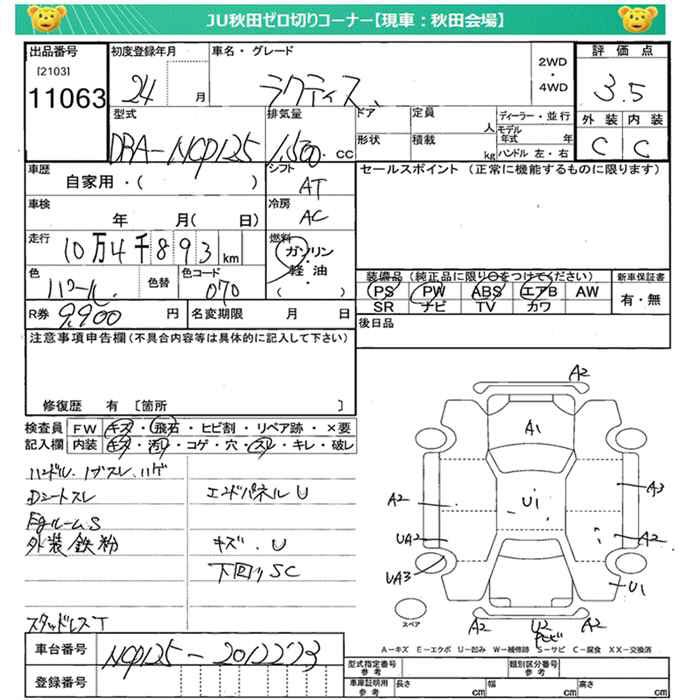 JU秋田ゼロ切りコーナー【現車:秋田会場】
出品番号
[2103]
11063
初度登録年月
24 月
車名・グレード
ラクティス
2WD
・
4WD
評価点
3.5
外装 内装
C C
型式
DBA-NCP125
排気量
1,500 CC
ドア
定員
人
形状
積載
kg
ディーラー・並行
モデル年式 年
ハンドル 左・右
車歴
自家用・( )
シフト
AT
セールスポイント (正常に機能するものに限ります)
車検
年 月( 日)
冷房
AC
走行
10万4千893 km
燃料
ガソリン
・
軽油
( )
色
パール
色替
色コード
070
装備品(純正品に限り○をつけてください)
PS PW ABS エアB AW
SR ナビ TV カワ
新車保証書
有・無
R券
9,900 円
名変期限 月 日
後日品
注意事項申告欄(不具合内容等は具体的に記入して下さい)
修復歴 有 [箇所 ]
検査員
記入欄
FW キズ・飛石・ヒビ割・リペア跡・×要
内装 キズ・汚れ・コゲ・穴・スレ・キレ・破レ
ハンドル、ノブスレ、ハゲ
Dシートスレ
EgルームS
外装鉄粉
スタッドレスT
エンドパネルU
キズ、U
下回りSC
A2
A1
A2
U1
A3
UA2
A2
UA3
U1
スペア
A2
U2
A2
A-キズ E-エクボ U-凹み W-補修跡 S-サビ C-腐食 XX-交換済
車台番号
NCP125-2012273
登録番号
型式指定番号
参考
類別区分番号
参考
車庫証明用
参考
長さ cm
幅 cm
高さ cm